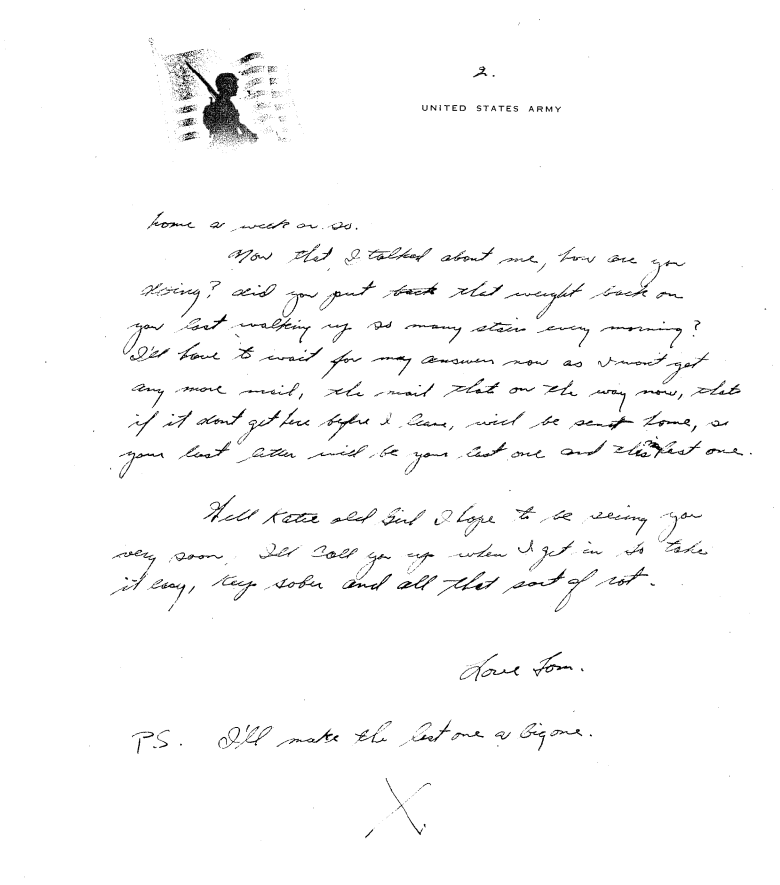 2.
UNITED STATES ARMY
home a week or so.
Now that I talked about me, how are you
doing? did you put back that weight back on
you lost walking up so many stairs every morning?
I'll have to wait for my answers now as I wont get
any more mail, the mail that on the way now, thats
if it dont get here before I leave, will be sent home, so
your last letter will be your last one and this last one.
Well Katie old Girl I hope to be seeing you
very soon. I'll call you up when I get in so take
it easy, keep sober and all that sort of rot.
Love Tom.
P.S. I'll make the last one a big one.
X